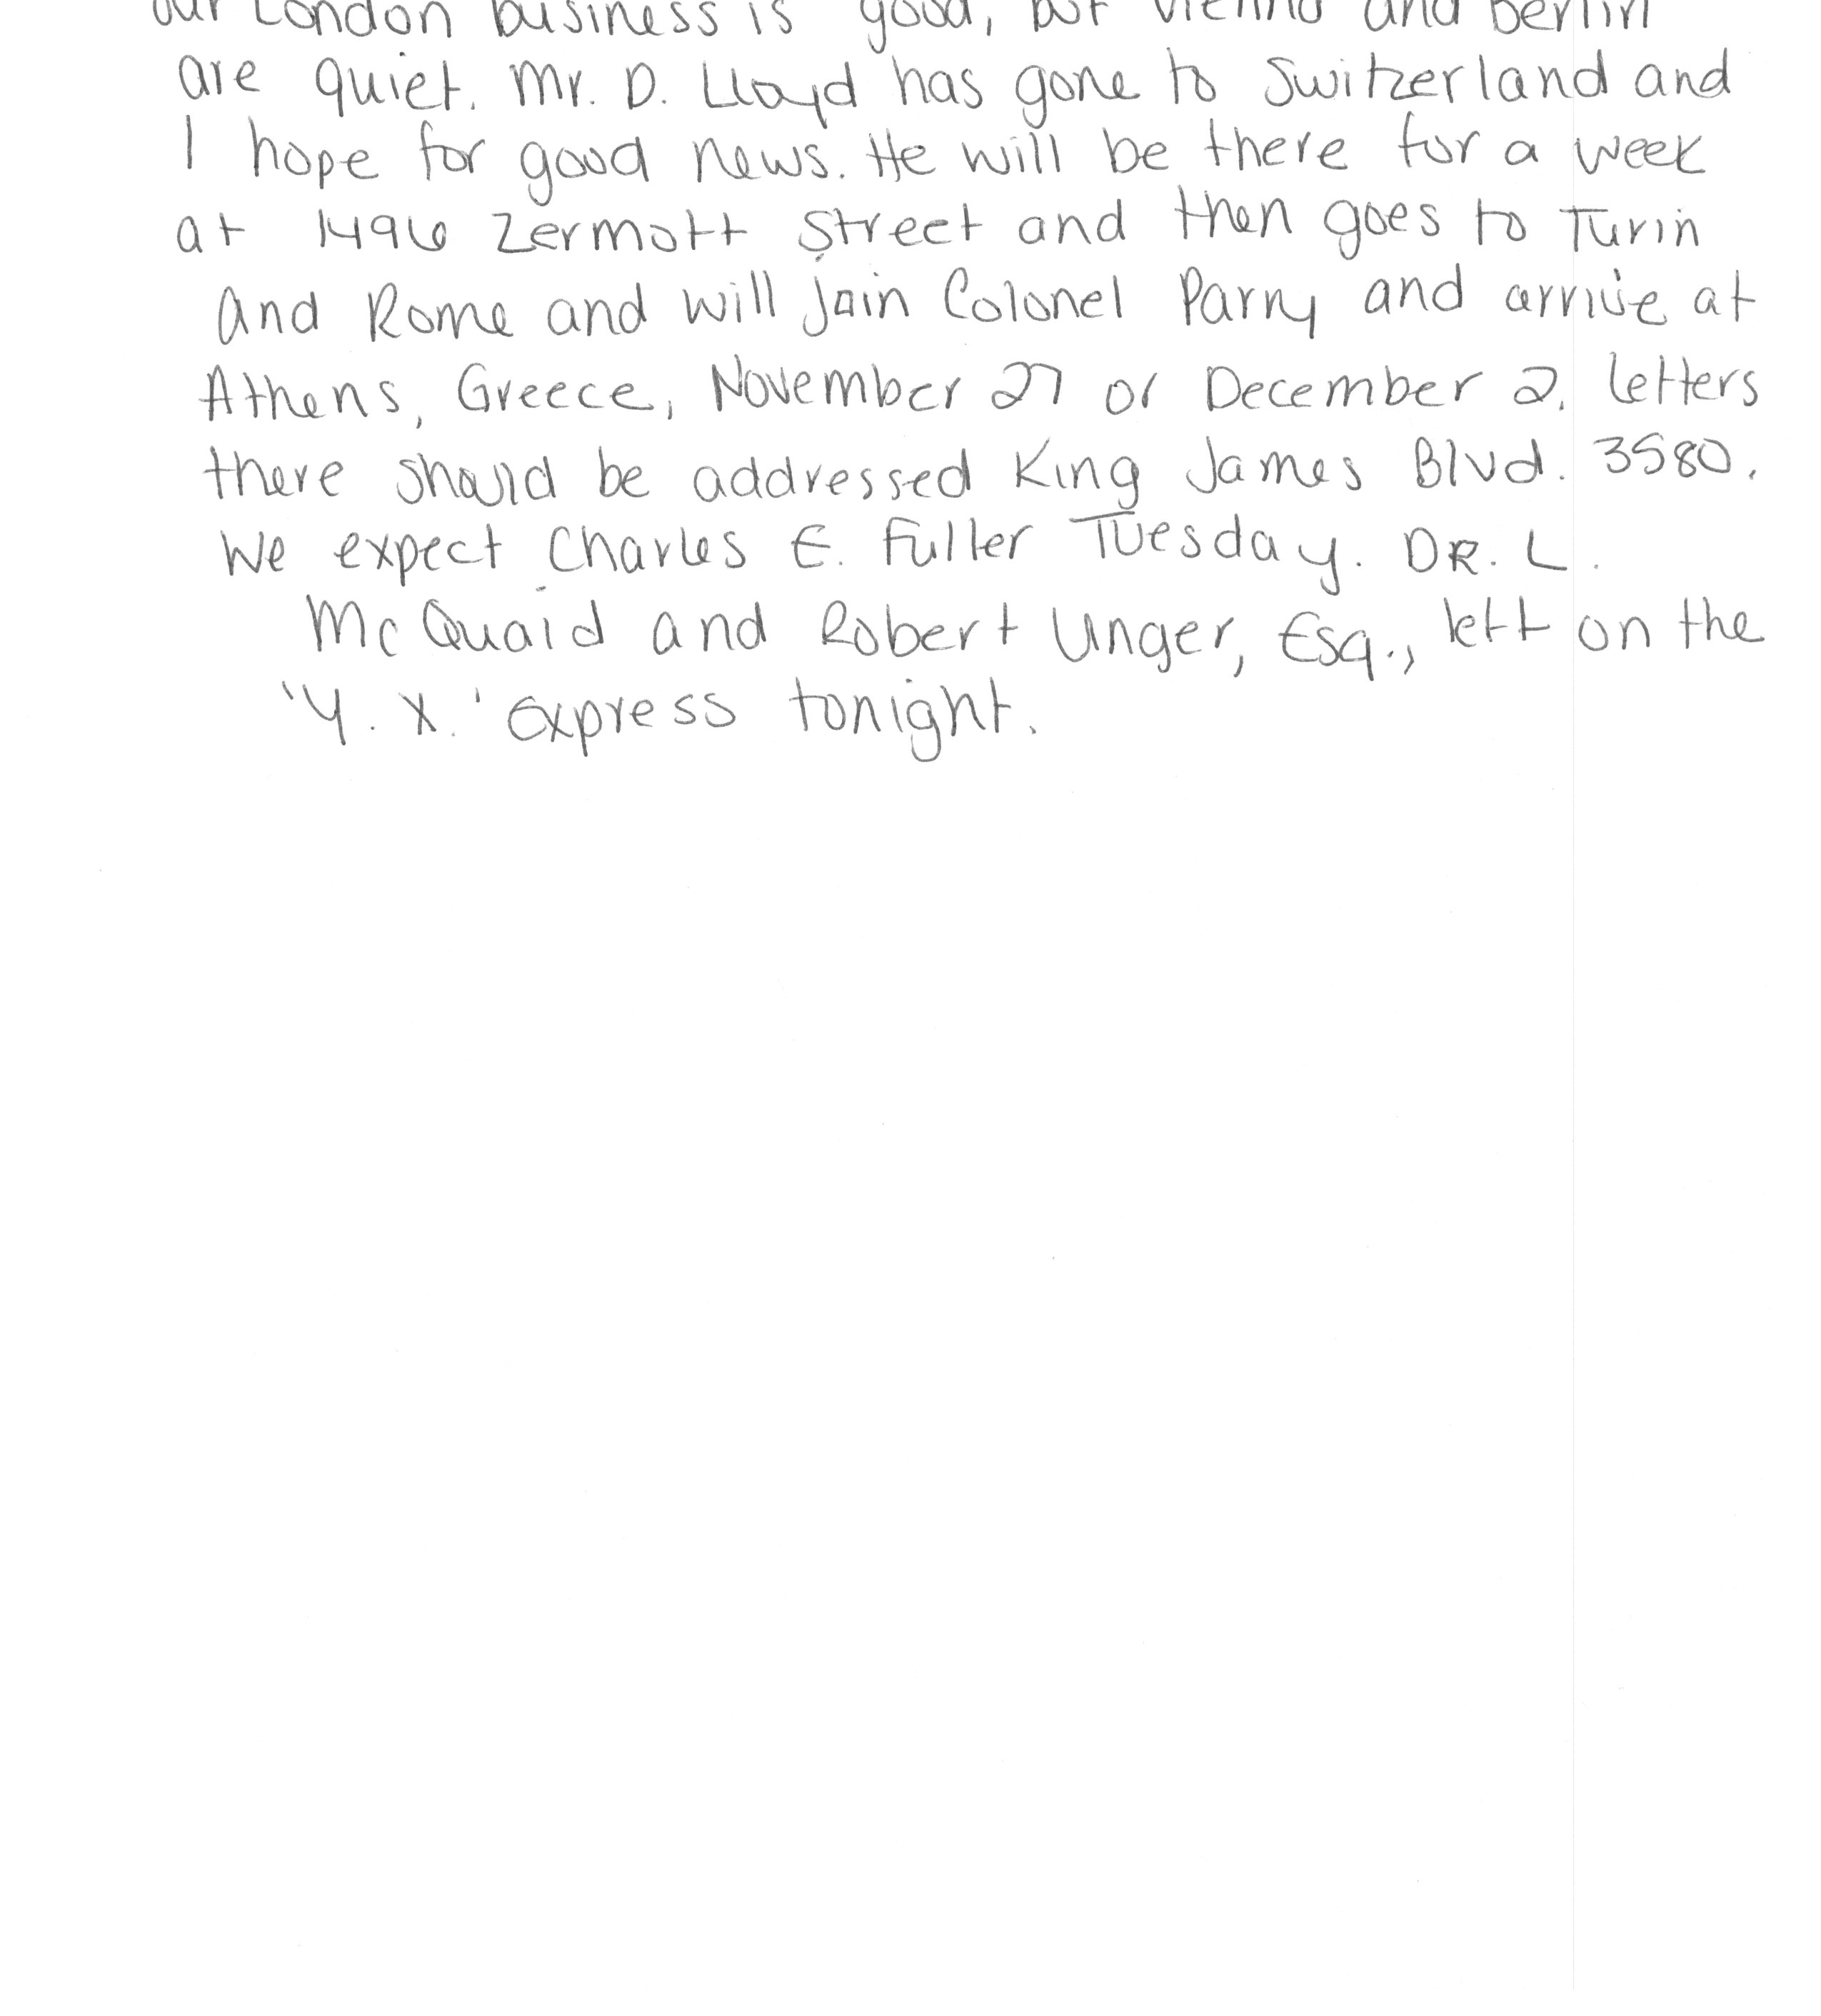 our London business is good, but Vienna and Berlin
are quiet. Mr. D. Lloyd has gone to Switzerland and
I hope for good news. He will be there for a week
at 1496 Zermott Street and then goes to Turin
and Rome and will join Colonel Parry and arrive at
Athens, Greece, November 27 or December 2. Letters
there should be addressed King James Blvd. 3580.
We expect Charles E. Fuller Tuesday. DR. L.
McQuaid and Robert Unger, Esq., left on the
'Y. X.' Express tonight.